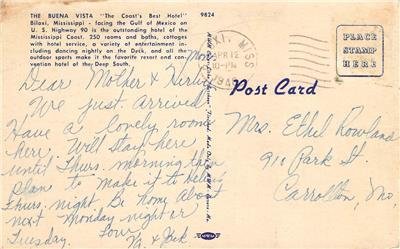 THE BUENA VISTA "The Coast's Best Hotel"
Biloxi, Mississippi - facing the Gulf of Mexico on
U. S. Highway 90 is the outstanding hotel of the
Mississippi Coast. 250 rooms and baths, cottages
with hotel service, a variety of entertainment in-
cluding dancing nightly on the Deck, and all the
outdoor sports make it the favorite resort and con-
vention hotel of the Deep South.
9824
MISS
APR 12
PM
PLACE
STAMP
HERE
Post Card
Dear Mother &
We just arrived
Have a lovely room
here. Will stay here
until Thurs. morning then
plan to make it to
Thurs. night. Be home about
next Monday night or
Tuesday.
Love
& Jack
Mrs. Ethel Rowland
910 Park St
Carrollton, Mo.